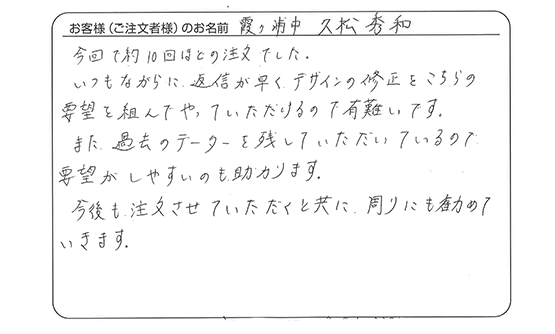 お客様(ご注文者様)のお名前 霞ヶ浦中 久松秀和
今回で約10回ほどの注文でした。
いつもながらに、返信が早く、デザインの修正をこちらの
要望を組んでやっていただけるので有難いです。
また、過去のデーターを残していただいているので
要望がしやすいのも助カリます。
今後も、注文させていただくと共に、周りにも勧めて
いきます。